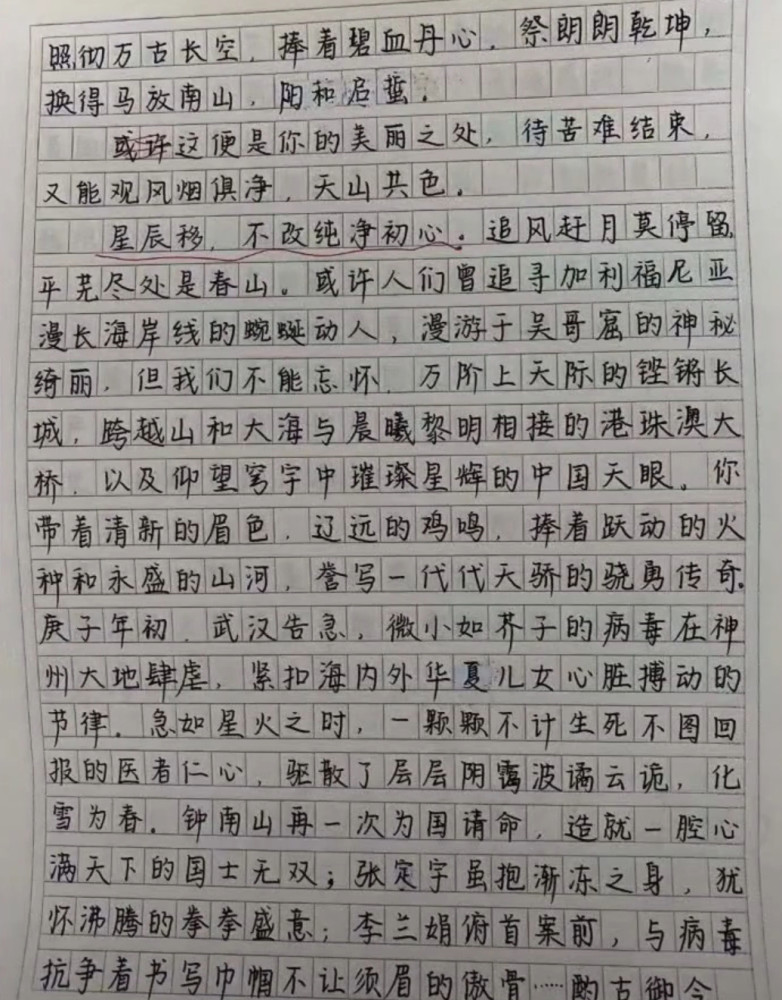 照彻万古长空，捧着碧血丹心，祭朗朗乾坤，
换得马放南山，阳和启蛰。
或许这便是你的美丽之处，待苦难结束，
又能观风烟俱净，天山共色。
星辰移，不改纯净初心。追风赶月莫停留，
平芜尽处是春山。或许人们曾追寻加利福尼亚
漫长海岸线的蜿蜒动人，漫游于吴哥窟的神秘
绮丽，但我们不能忘怀，万阶上天际的铿锵长
城，跨越山和大海与晨曦黎明相接的港珠澳大
桥，以及仰望穹宇中璀璨星辉的中国天眼。你
带着清新的眉色，辽远的鸡鸣，捧着跃动的火
种和永盛的山河，誊写一代代天骄的骁勇传奇。
庚子年初，武汉告急，微小如芥子的病毒在神
州大地肆虐，紧扣海内外华夏儿女心脏搏动的
节律。急如星火之时，一颗颗不计生死不图回
报的医者仁心，驱散了层层阴霭波谲云诡，化
雪为春。钟南山再一次为国请命，造就一腔心
满天下的国士无双；张定宇虽抱渐冻之身，犹
怀沸腾的拳拳盛意；李兰娟俯首案前，与病毒
抗争着书写巾帼不让须眉的傲骨……酌古御今